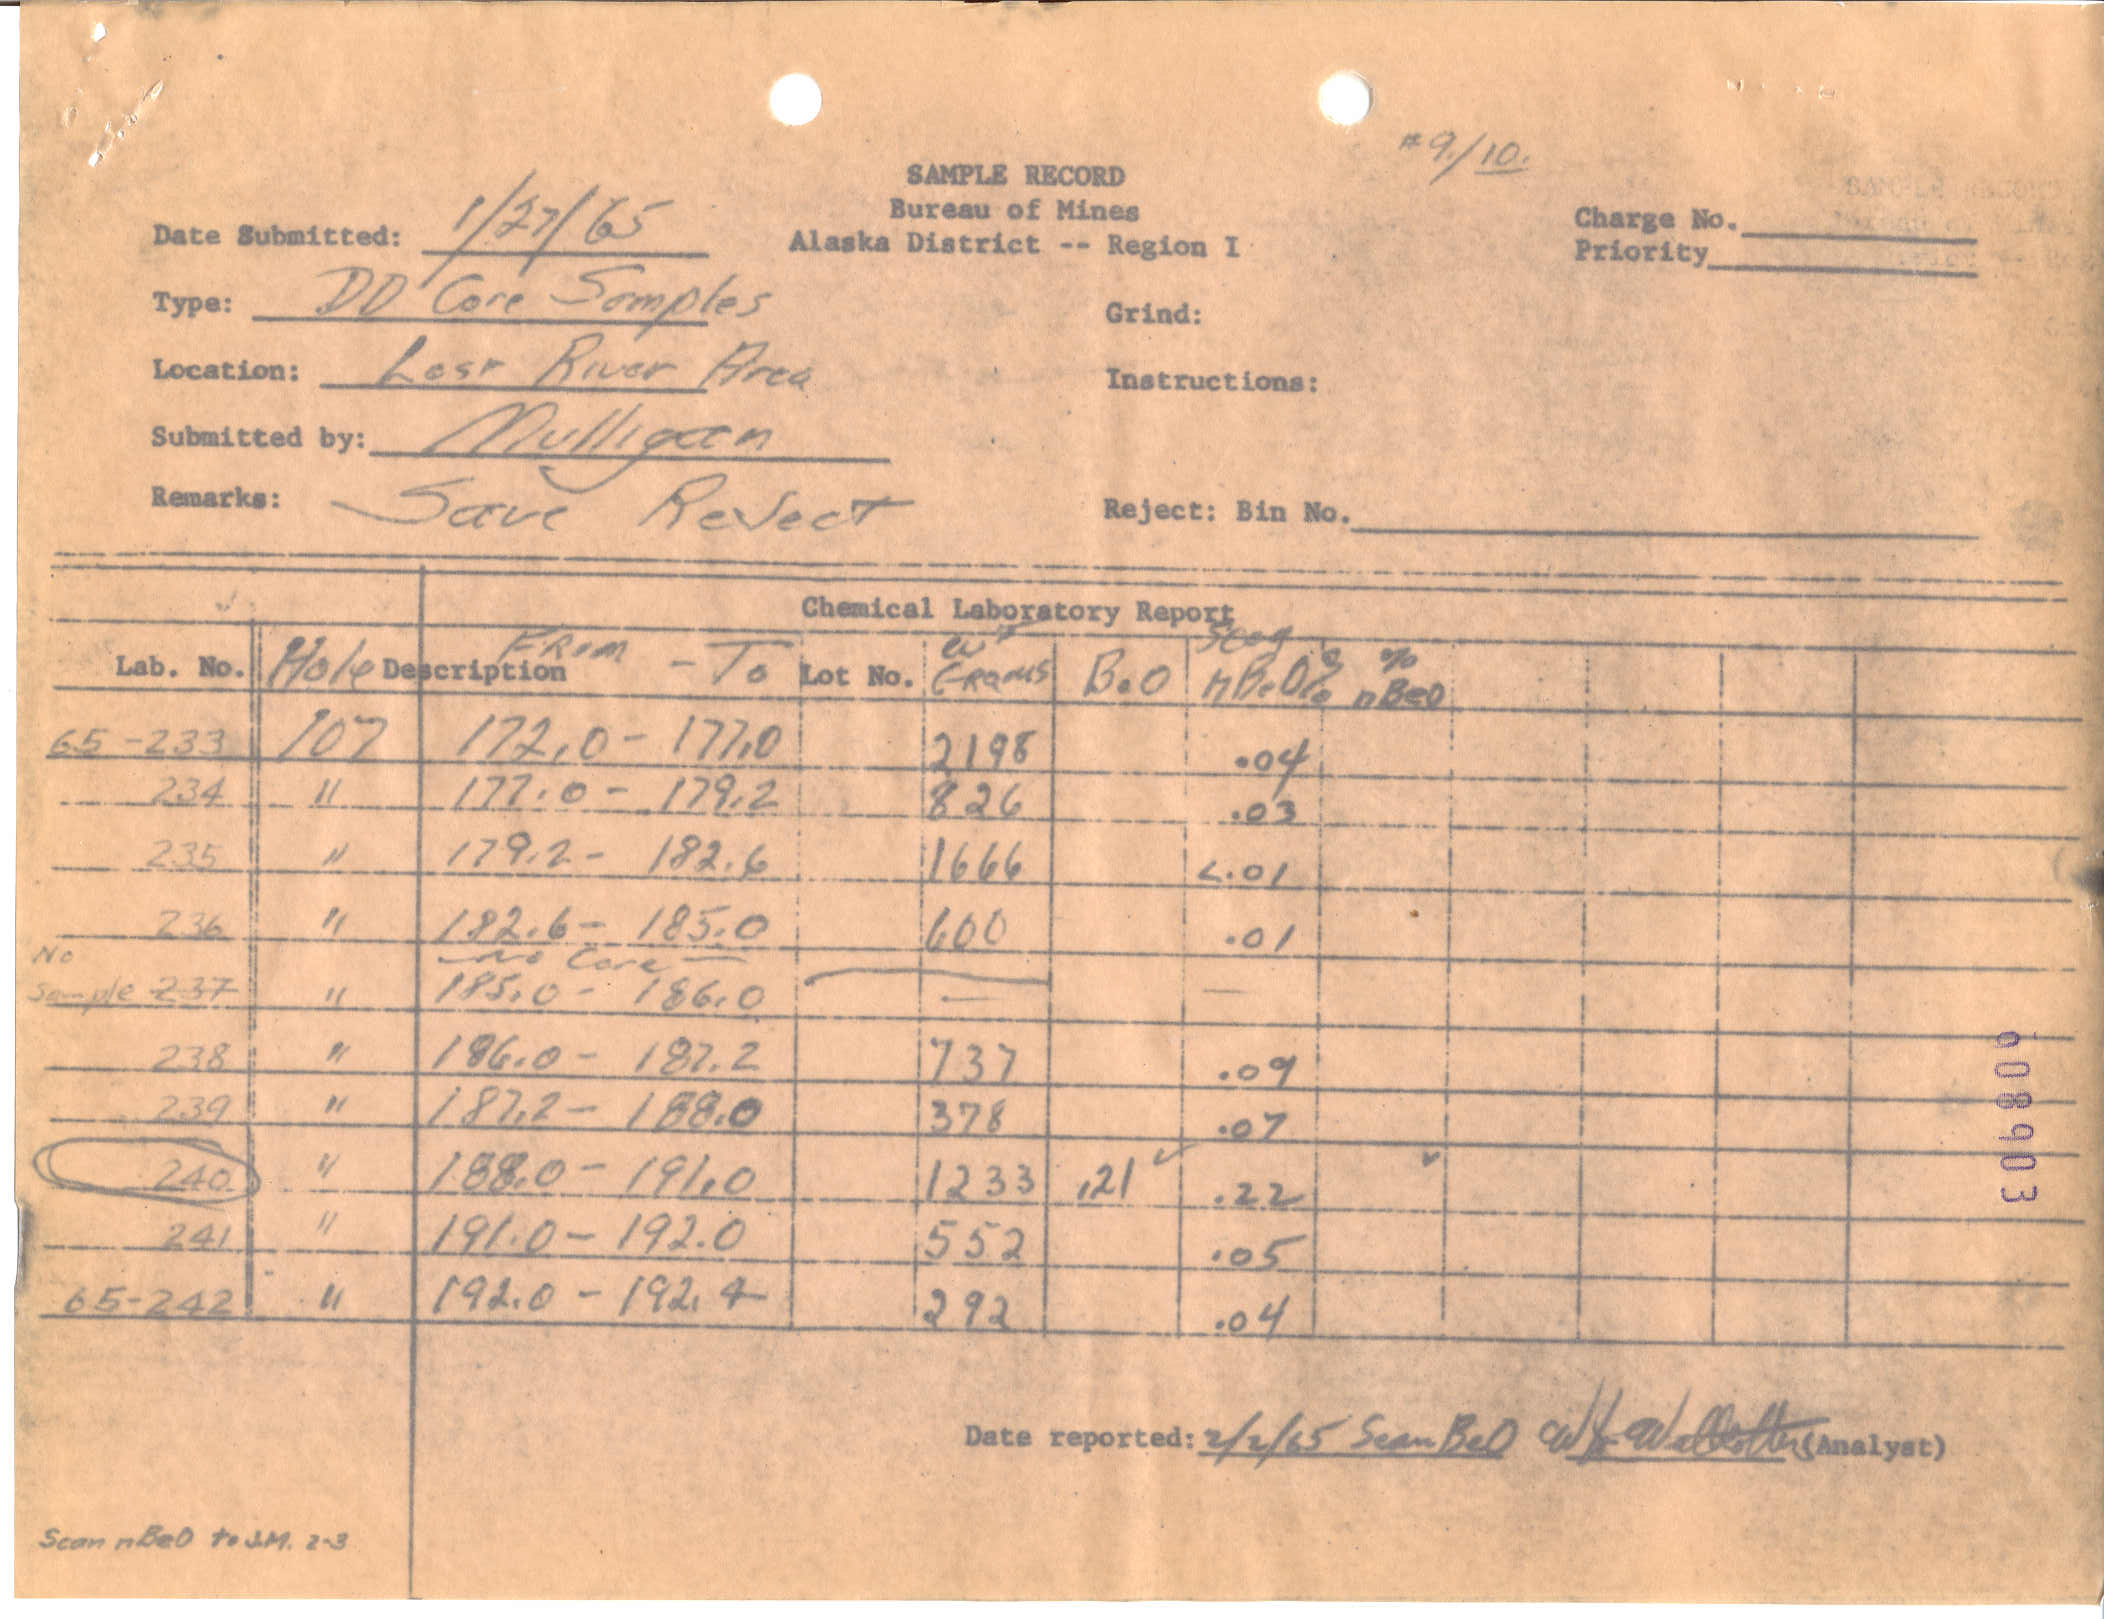 #9./10.
SAMPLE RECORD
Bureau of Mines
Alaska District -- Region I
Charge No.
Priority
Date Submitted: 1/27/65
Type: DD Core Samples
Grind:
Location: Lost River Area
Instructions:
Submitted by: Mulligan
Remarks: Save Reject
Reject: Bin No.
Chemical Laboratory Report
Lab. No. Hole Description From - To Lot No. WT Grams BeO nBeO% % nBeO
65-233 107 172.0 - 177.0 2198 .04
234 " 177.0 - 179.2 826 .03
235 " 179.2 - 182.6 1666 <.01
236 " 182.6 - 185.0 600 .01
No Core
No Sample 237 " 185.0 - 186.0 — —
238 " 186.0 - 187.2 737 .09
239 " 187.2 - 188.0 378 .07
240 " 188.0 - 191.0 1233 .21 .22
241 " 191.0 - 192.0 552 .05
65-242 " 192.0 - 192.4 292 .04
Date reported: 2/2/65 Scan BeO (Analyst)
Scan nBeO to J.M. 2-3